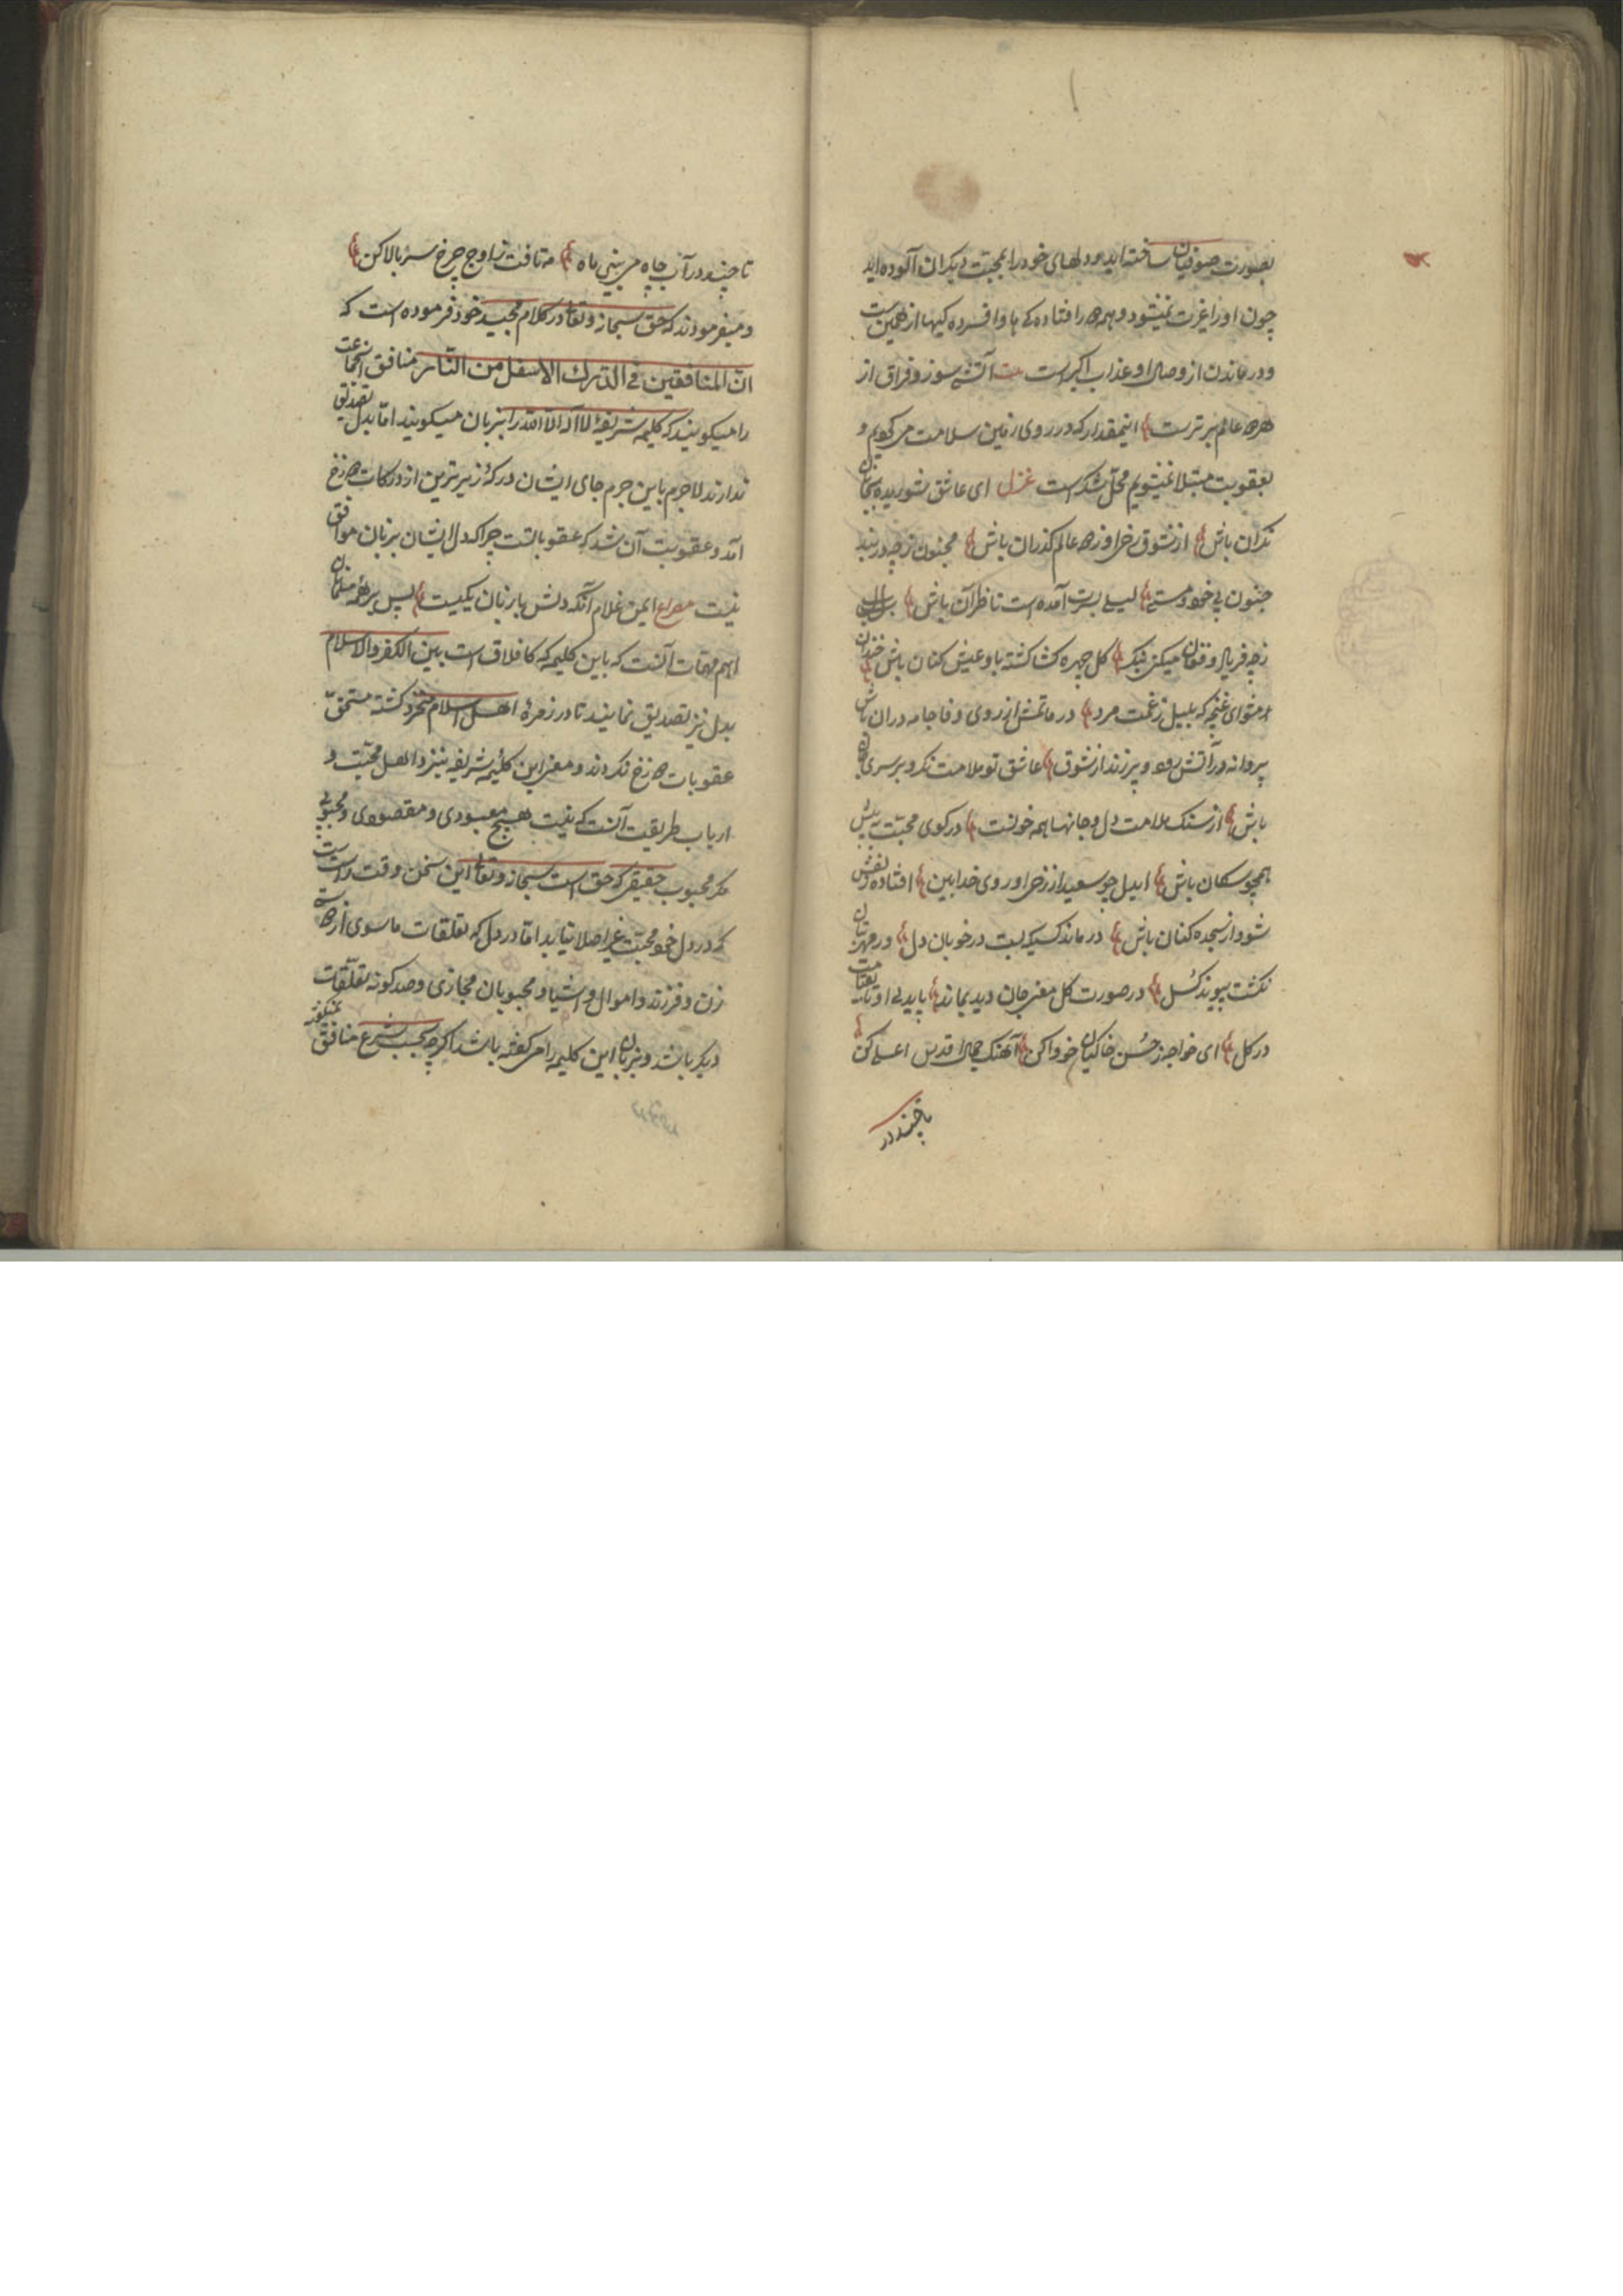 بصورت صوفیان ساخته اید و دلهای خود را بمحبت دیکران آلوده اید
چون او را غیرت نمیشود و بهره را افتاده کے ها و افسرده کیها از همین است
و در ماندن از وصال او عذاب اکبر است بیت آتش سوز فراق از
هرچه عالم برترست اینمقدار که در روی زمین سلامت می کویم و
بعقوبت مبتلا نمیشویم محل شکر است غزل ای عاشق شوریده بجان
نکران باش از شوق رخ او زهمه عالم گذران باش مجنون زچه در بند
جنون بی خود و مستی لیلے بسرت آمده است ناظر آن باش بلبل
زچه فریاد و فغان میکنی اینک کل چهره کشا کشته باو عیش کنان باش خندان
مشو ای غنچه که بلبل زغمت مرد در ماتمش از روی وفا جامه دران باش
پروانه در آتش رود و پر زند از شوق عاشق تو ملامت نکر و بر سر آن
باش از سنک ملامت دل و جانها همه خونست در کوی محبت
همچو سکان باش ایدل چو سعید از رخ او روی خدا بین افتاده بنقش
شو و از سجده کنان باش در ماند کسیکه بست در خوبان دل ور مهر بتان
نکشت پیوند کسل در صورت کل معنی جان دید بماند پای دل او تا بقیامت
در کل ای خواجه ز حسن خاکیان خو واکن آهنک جمال اقدس اعلے کن
تا چند در
تا چند در آب چاه می بینی ماه مه تافت ز اوج چرخ سر بالا کن
و میفرمودند که حق سبحانه و تعالی در کلام مجید خود فرموده است که
ان المنافقین فی الدرک الاسفل من النار منافق آنجماعت
را میکویند که کلیمه شریفهٔ لا اله الا الله را بزبان میکویند اما بدل تصدیق
ندارند لاجرم باین جرم جای ایشان درکهٔ زیرترین از درکات دوزخ
آمد و عقوبت آن شد که عقوباتست چرا که دل ایشان بزبان موافق
نیست مصراع ایمن غلام آنکه دلش با زبان یکیست پس بر همه مسلمانان
اهم مهمات آنست که باین کلیمه که کا فلاق است بین الکفر والاسلام
بدل نیز تصدیق نمایند تا در زمرهٔ اهل اسلام منخرد کشته مستحق
عقوبات دوزخ نکردند و معنی این کلیمه شریفه نیز نزد اهل محبت و
ارباب طریقت آنست که نیست هیچ معبودی و مقصودی و محبوبی
مکر محبوب حقیقی که حق است سبحانه و تعالی این سخن وقت راست
که در دل خود محبت غیر اصلا نیابد اما در دل که تعلقات ماسوی از
زن و فرزند و اموال و اشیا و محبوبان مجازی و صد کونه تعلقات
دیکر باشد و بزبان این کلیمه را می کفته باشد اکرچه بحسب شرع منافق